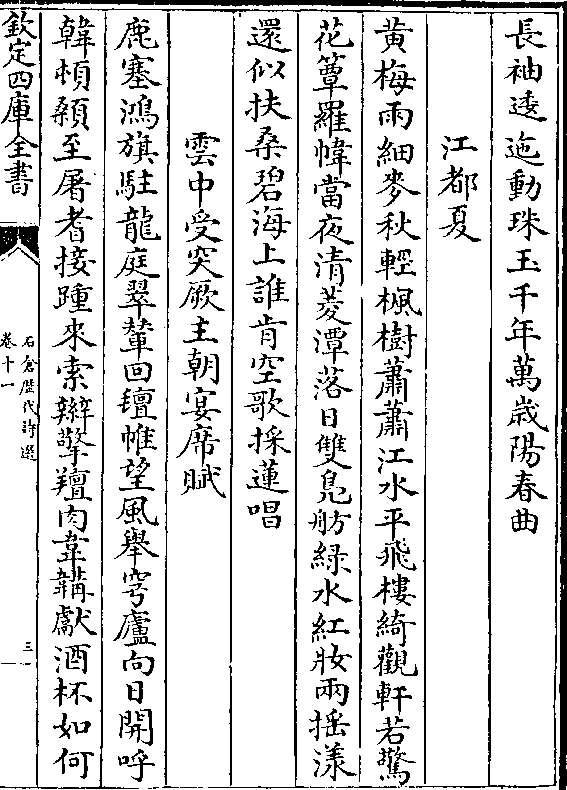 長袖逶迤動珠玉千年萬歲陽春曲
江都夏
黄梅雨細麥秋輕楓樹蕭蕭江水平飛樓綺觀軒若驚
花簟羅幃當夜清菱潭落日雙鳬舫緑水紅妝兩揺漾
還似扶桑碧海上誰肯空歌採蓮唱
雲中受突厥主朝宴席賦
鹿塞鴻旗駐龍庭翠輦回氊帷望風舉穹廬向日開呼
韓頓顙至屠耆接踵來索辮擎羶肉韋韝獻酒杯如何
欽定四庫全書
石倉歴代詩選
卷十一
三